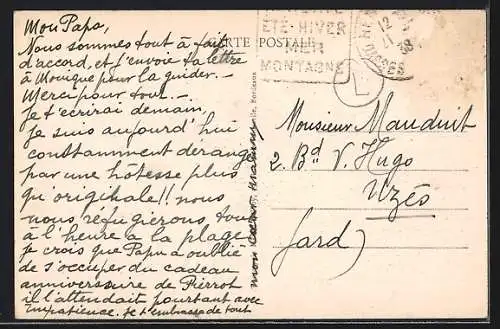 Mon Papa,
Nous sommes tout à fait
d'accord, et j'envoie ta lettre
à Monique pour la guider. –
Merci pour tout. –
Je t'écrirai demain,
je suis aujourd'hui
constamment dérangée
par une hôtesse plus
qu'originale!! nous
nous refugierons tout
à l'heure à la plage
Je crois que Papu a oublié
de s'occuper du cadeau
anniversaire de Pierrot
il l'attendait pourtant avec
impatience. Je t'embrasse de tout
mon cœur,
CARTE POSTALE
ÉTÉ-HIVER
MONTAGNE
12
38
L
Monsieur Mauduit
2. Bd V. Hugo
Uzés
Gard)